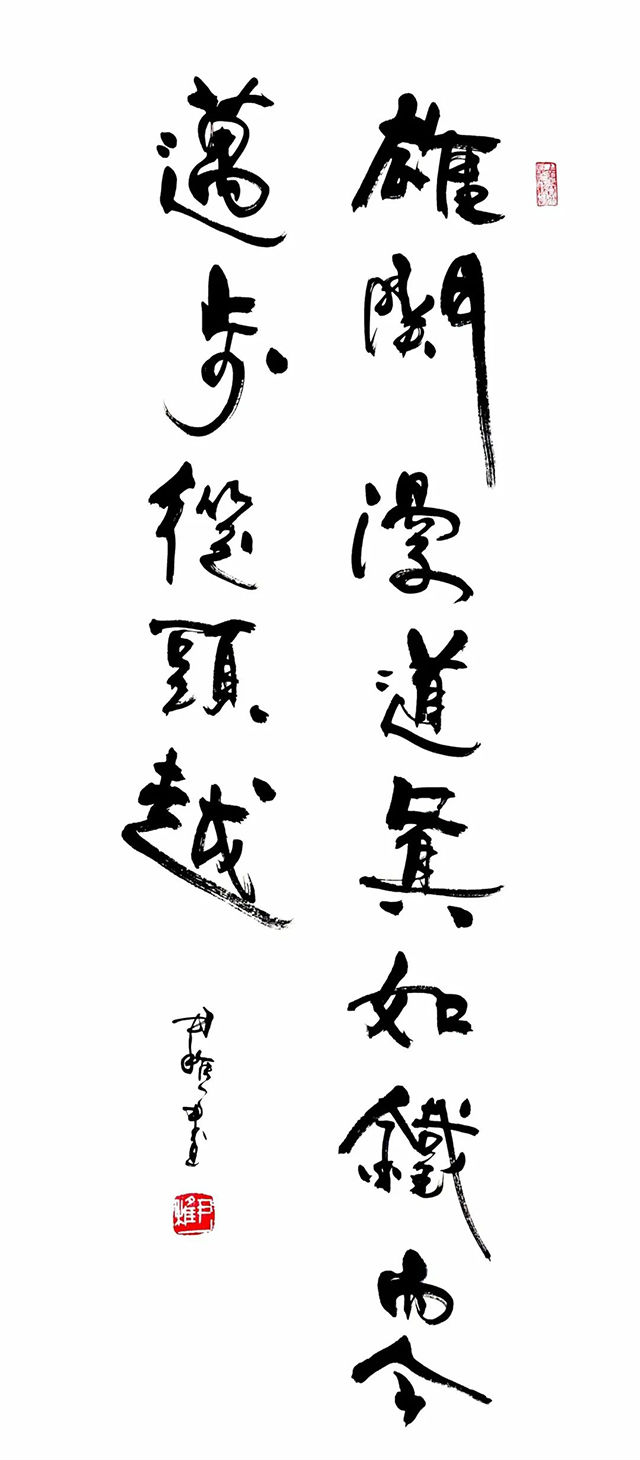 雄關漫道真如鐵而今
邁步從頭越